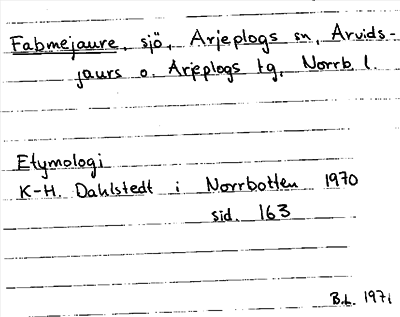 Fabmejaure, sjö, Arjeplogs sn, Arvids-
jaurs o. Arjeplogs tg, Norrb l.
Etymologi
K-H. Dahlstedt i Norrbotten 1970
sid. 163
B.L. 1971